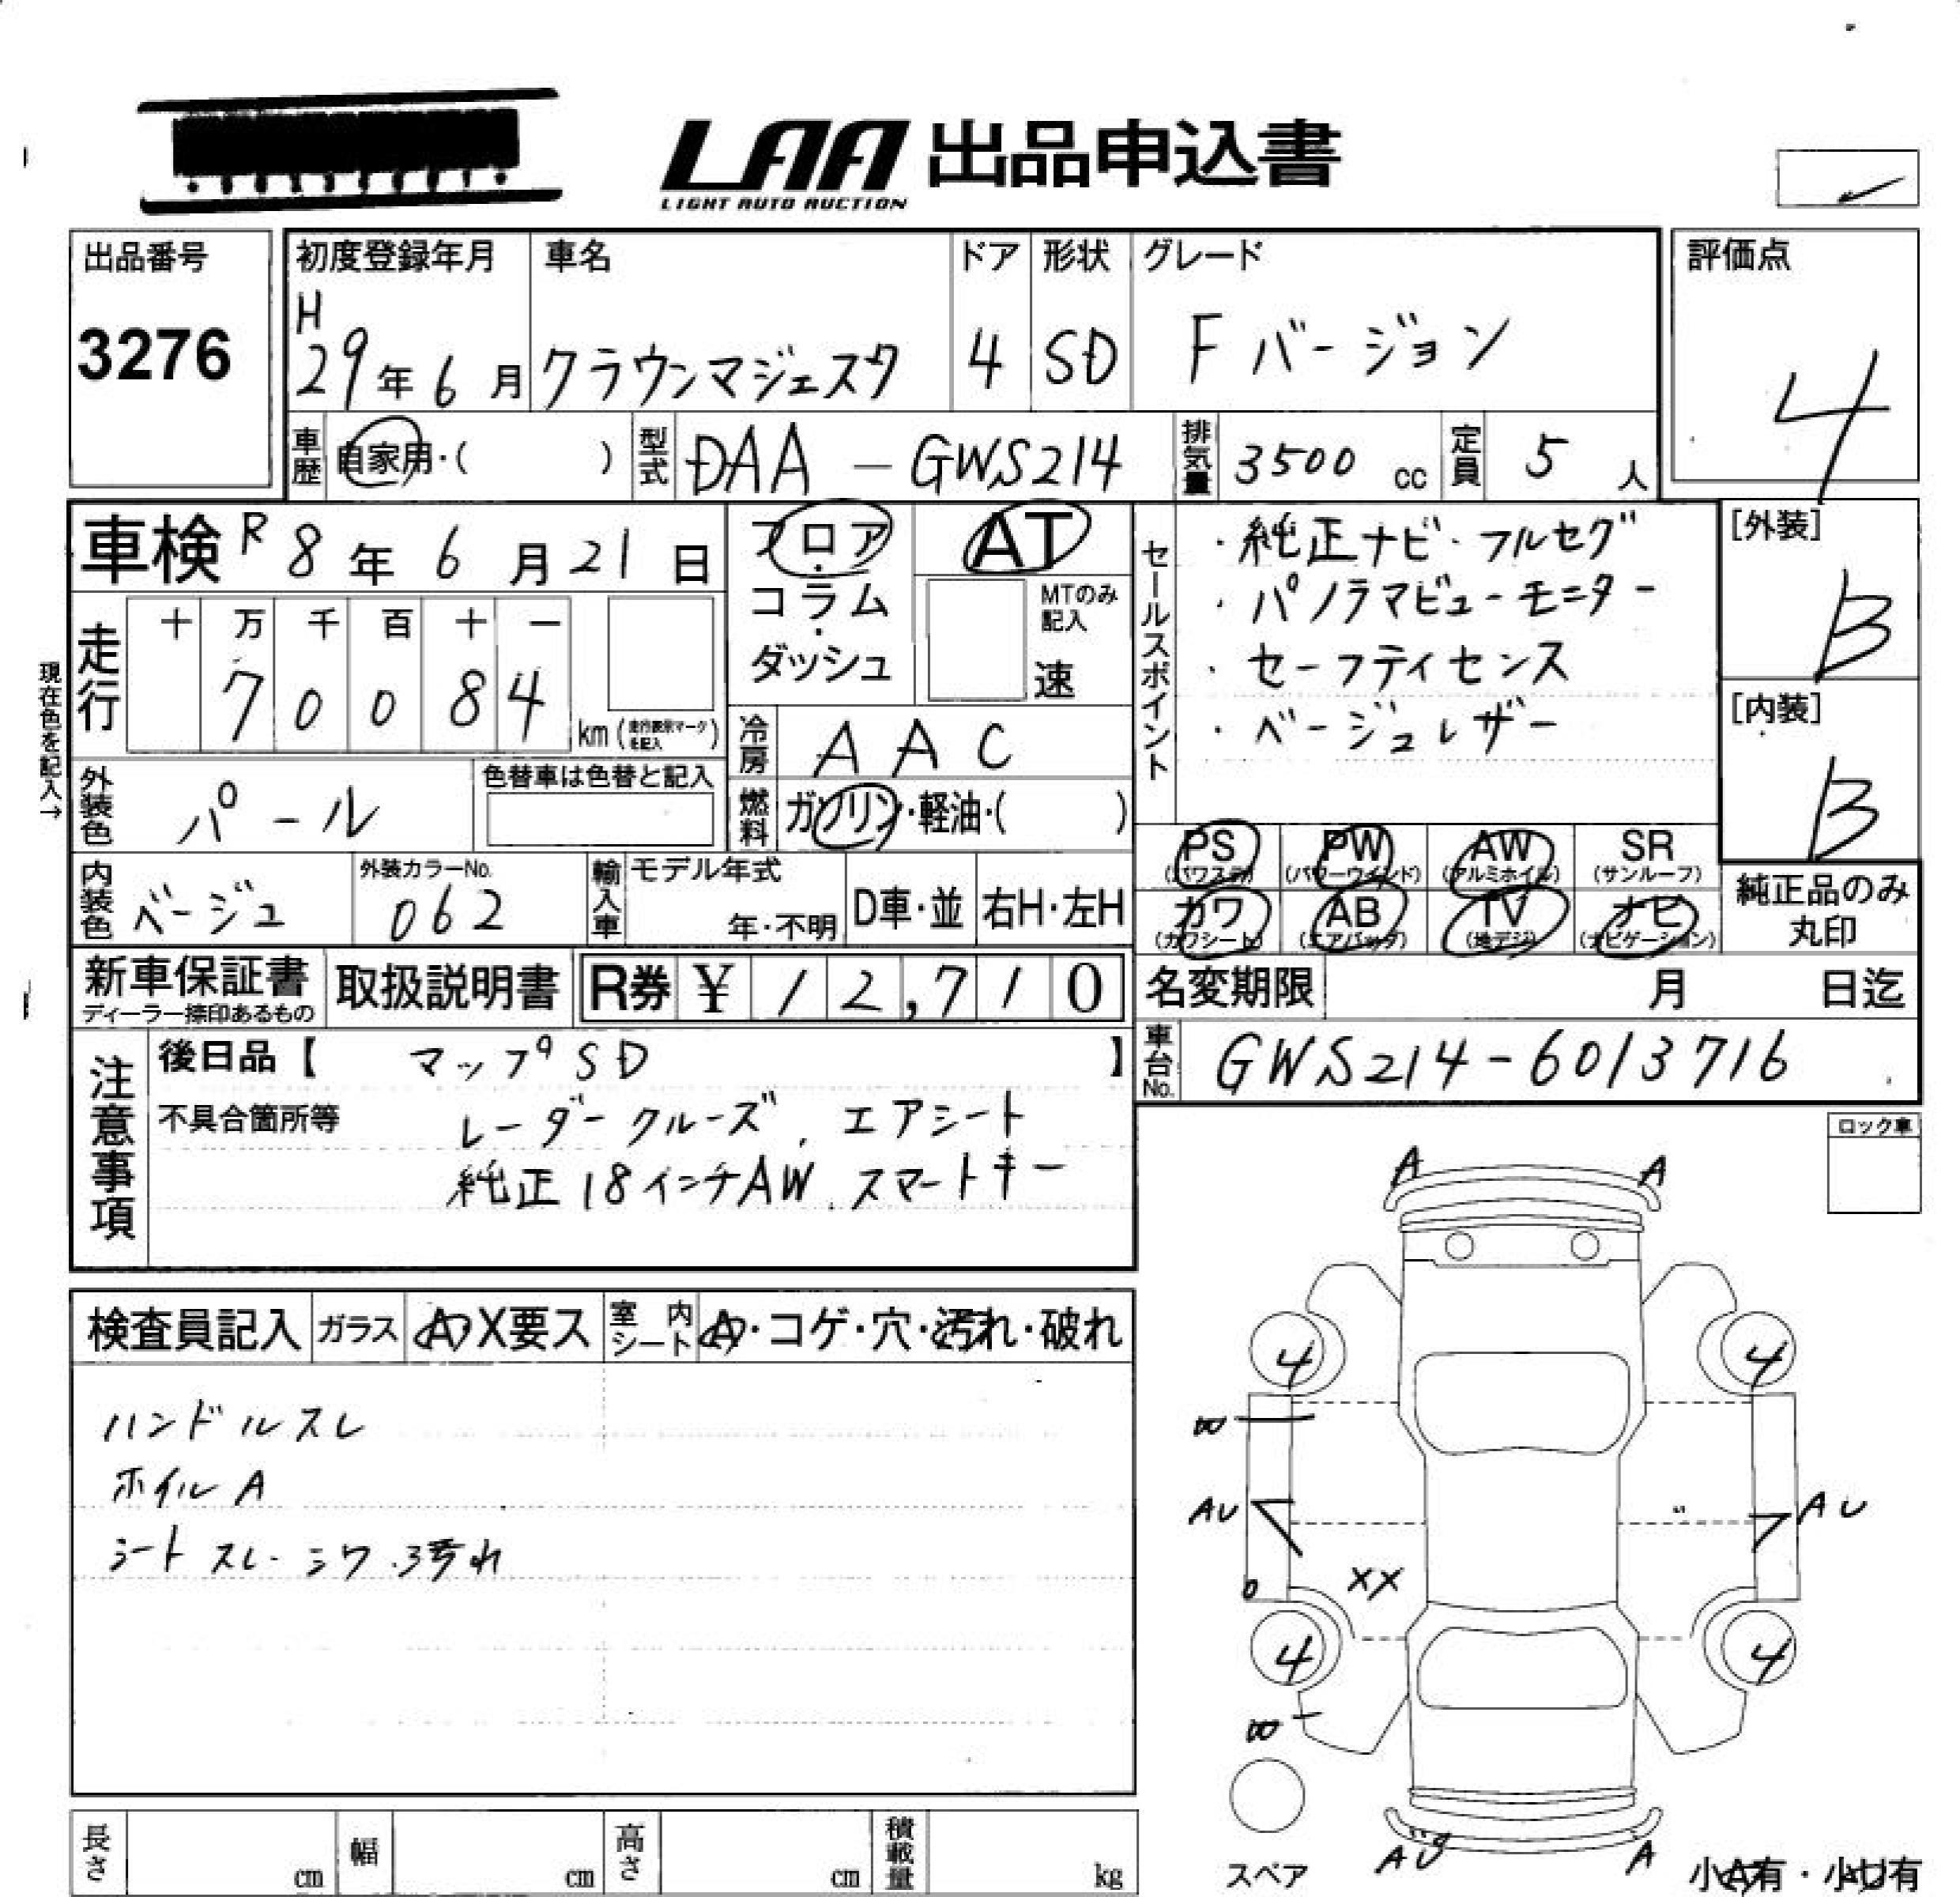 LAA 出品申込書
LIGHT AUTO AUCTION
出品番号
3276
初度登録年月
H
29年6月
車名
クラウンマジェスタ
ドア
4
形状
SD
グレード
Fバージョン
評価点
4
車歴 自家用・( )
型式 DAA-GWS214
排気量 3500 cc
定員 5 人
車検 R8年6月21日
フロア・
コラム・
ダッシュ
AT
MTのみ
記入
速
セールスポイント
・純正ナビ・フルセグ
・パノラマビューモニター
・セーフティセンス
・ベージュレザー
[外装]
B
[内装]
B
現在色を記入→
走行
十 万 千 百 十 一
7 0 0 8 4
km
冷房 AAC
燃料 ガソリン・軽油・( )
外装色 パール
色替車は色替と記入
内装色 ベージュ
外装カラーNo.
062
輸入車
モデル年式
年・不明
D車・並
右H・左H
PS (パワステ)
PW (パワーウィンド)
AW (アルミホイル)
SR (サンルーフ)
カワ (カワシート)
AB (エアバッグ)
TV (地デジ)
ナビ (ナビゲーション)
純正品のみ
丸印
新車保証書
ディーラー捺印あるもの
取扱説明書
R券 ¥12,710
名変期限 月 日迄
車台No. GWS214-6013716
注意事項
後日品【 マップSD 】
不具合箇所等
レーダークルーズ、エアシート
純正18インチAW、スマートキー
ロック車
検査員記入
ガラス
A・X要ス
室内シート
A・コゲ・穴・汚れ・破れ
ハンドルスレ
ホイルA
シートスレ・シワ・汚れ
A A
4 4
W
AU AU
XX
4 4
W
スペア
AU A
小A有・小U有
長さ cm
幅 cm
高さ cm
積載量 kg